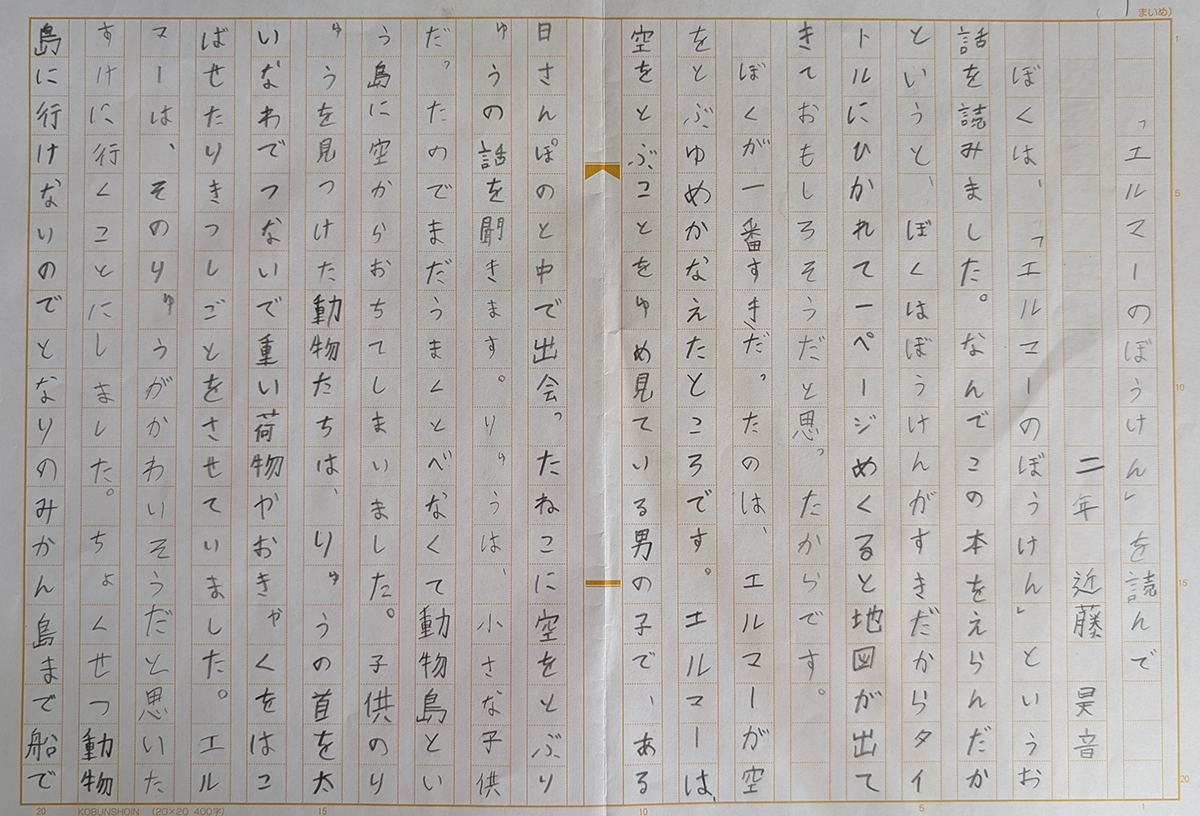 ( 1 まいめ)
「エルマーのぼうけん」を読んで
二年 近藤 昊音
ぼくは、「エルマーのぼうけん」というお
話を読みました。なんでこの本をえらんだか
というと、ぼくはぼうけんがすきだからタイ
トルにひかれて一ページめくると地図が出て
きておもしろそうだと思ったからです。
ぼくが一番すきだったのは、エルマーが空
をとぶゆめかなえたところです。エルマーは、
空をとぶことをゆめ見ている男の子で、ある
日さんぽのと中で出会ったねこに空をとぶり
ゅうの話を聞きます。りゅうは、小さな子供
だったのでまだうまくとべなくて動物島とい
う島に空からおちてしまいました。子供のり
ゅうを見つけた動物たちは、りゅうの首を太
いなわでつないで重い荷物やおきゃくをはこ
ばせたりきつしごとをさせていました。エル
マーは、そのりゅうがかわいそうだと思いた
すけに行くことにしました。ちょくせつ動物
島に行けないのでとなりのみかん島まで船で
1
5
10
15
20
20
KOBUNSHOIN (20×20 400字)
15
10
5
1